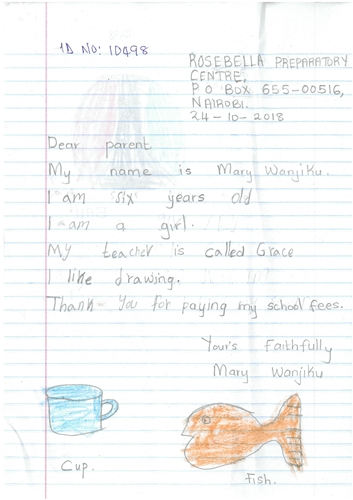 ID NO: 10498
ROSEBELLA PREPARATORY
CENTRE,
P O BOX 655-00516,
NAIROBI.
24-10-2018
Dear parent
My name is Mary Wanjiku.
I am six years old
I am a girl.
My teacher is called Grace
I like drawing.
Thank You for paying my school fees.
Your's Faithfully
Mary Wanjiku
Cup.
Fish.